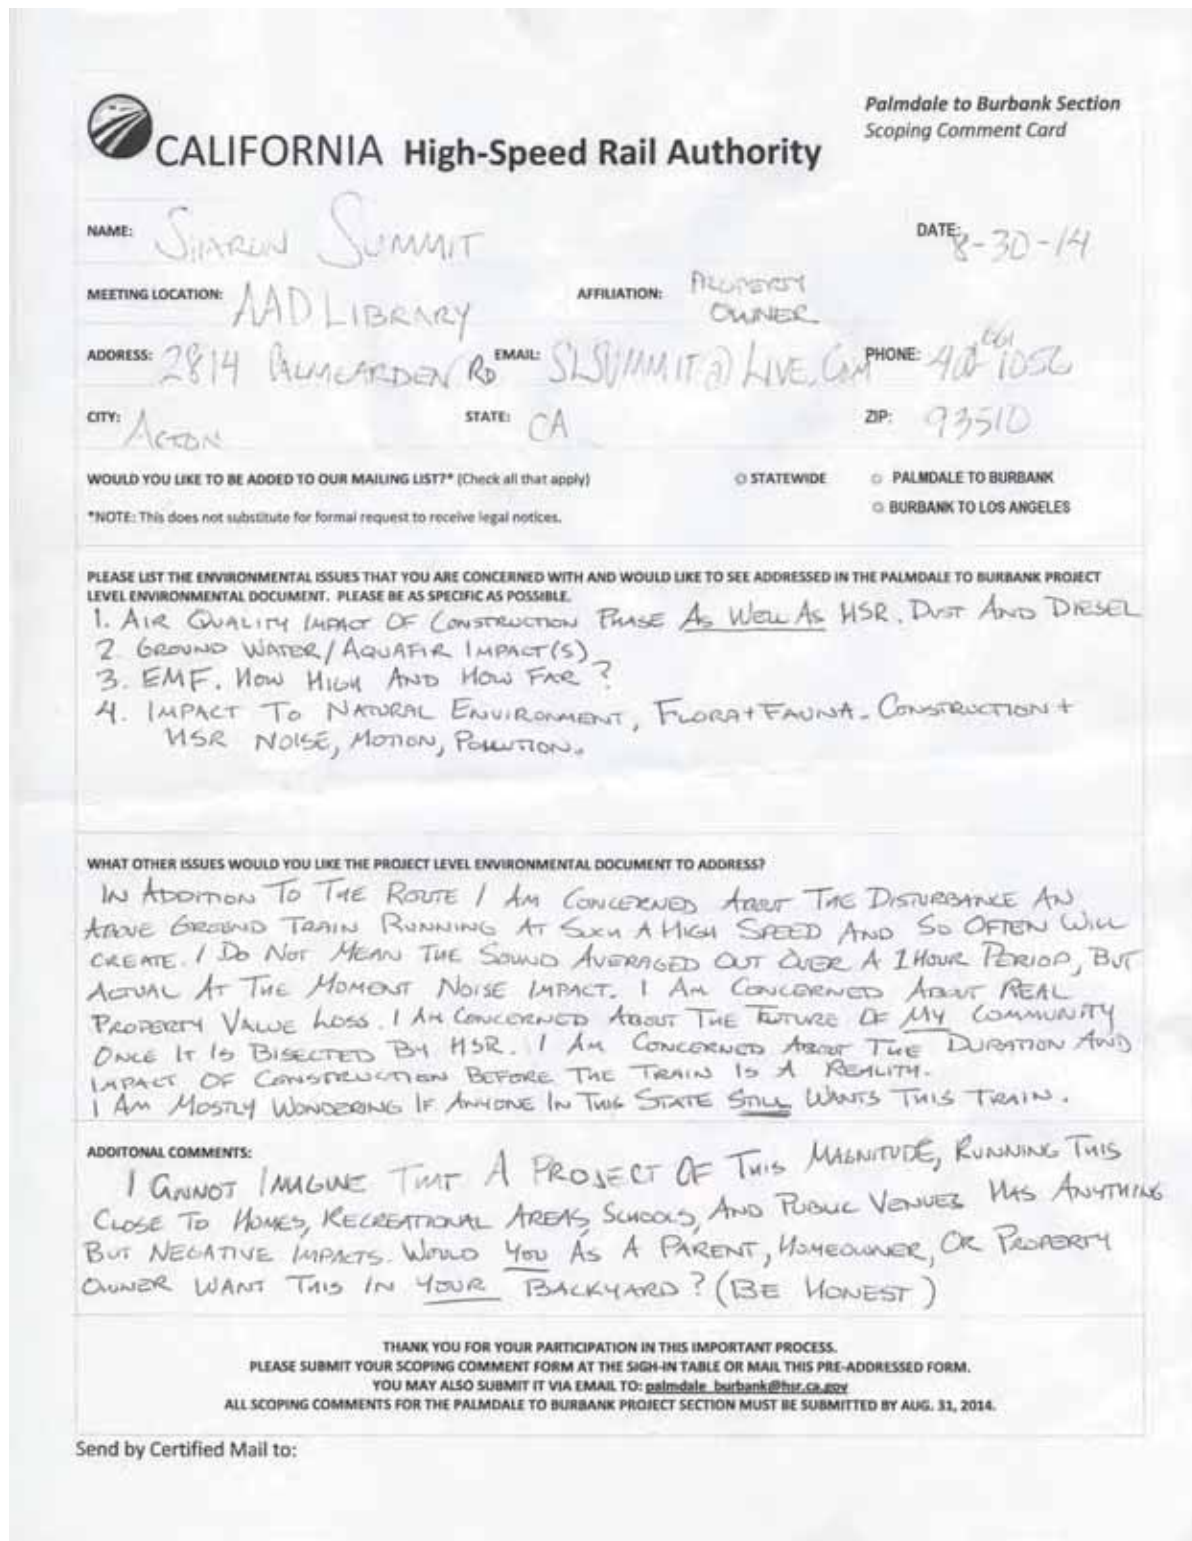 Palmdale to Burbank Section
Scoping Comment Card
CALIFORNIA High-Speed Rail Authority
NAME: SHARON SUMMIT DATE: 8-30-14
MEETING LOCATION: AAD LIBRARY AFFILIATION: PROPERTY OWNER
ADDRESS: 2814 RD EMAIL: SLSUMMIT@LIVE.COM PHONE: 1056
CITY: ACTON STATE: CA ZIP: 93510
WOULD YOU LIKE TO BE ADDED TO OUR MAILING LIST?* (Check all that apply) STATEWIDE PALMDALE TO BURBANK
*NOTE: This does not substitute for formal request to receive legal notices. BURBANK TO LOS ANGELES
PLEASE LIST THE ENVIRONMENTAL ISSUES THAT YOU ARE CONCERNED WITH AND WOULD LIKE TO SEE ADDRESSED IN THE PALMDALE TO BURBANK PROJECT
LEVEL ENVIRONMENTAL DOCUMENT. PLEASE BE AS SPECIFIC AS POSSIBLE.
1. AIR QUALITY IMPACT OF CONSTRUCTION PHASE AS WELL AS HSR. DUST AND DIESEL
2. GROUND WATER/AQUAFIR IMPACT(S)
3. EMF. HOW HIGH AND HOW FAR?
4. IMPACT TO NATURAL ENVIRONMENT, FLORA + FAUNA. CONSTRUCTION +
HSR NOISE, MOTION, POLLUTION.
WHAT OTHER ISSUES WOULD YOU LIKE THE PROJECT LEVEL ENVIRONMENTAL DOCUMENT TO ADDRESS?
IN ADDITION TO THE ROUTE I AM CONCERNED ABOUT THE DISTURBANCE AN
ABOVE GROUND TRAIN RUNNING AT SUCH A HIGH SPEED AND SO OFTEN WILL
CREATE. I DO NOT MEAN THE SOUND AVERAGED OUT OVER A 1 HOUR PERIOD, BUT
ACTUAL AT THE MOMENT NOISE IMPACT. I AM CONCERNED ABOUT REAL
PROPERTY VALUE LOSS. I AM CONCERNED ABOUT THE FUTURE OF MY COMMUNITY
ONCE IT IS BISECTED BY HSR. I AM CONCERNED ABOUT THE DURATION AND
IMPACT OF CONSTRUCTION BEFORE THE TRAIN IS A REALITY.
I AM MOSTLY WONDERING IF ANYONE IN THIS STATE STILL WANTS THIS TRAIN.
ADDITONAL COMMENTS:
I CANNOT IMAGINE THAT A PROJECT OF THIS MAGNITUDE, RUNNING THIS
CLOSE TO HOMES, RECREATIONAL AREAS, SCHOOLS, AND PUBLIC VENUES HAS ANYTHING
BUT NEGATIVE IMPACTS. WOULD YOU AS A PARENT, HOMEOWNER, OR PROPERTY
OWNER WANT THIS IN YOUR BACKYARD? (BE HONEST)
THANK YOU FOR YOUR PARTICIPATION IN THIS IMPORTANT PROCESS.
PLEASE SUBMIT YOUR SCOPING COMMENT FORM AT THE SIGH-IN TABLE OR MAIL THIS PRE-ADDRESSED FORM.
YOU MAY ALSO SUBMIT IT VIA EMAIL TO: palmdale_burbank@hsr.ca.gov
ALL SCOPING COMMENTS FOR THE PALMDALE TO BURBANK PROJECT SECTION MUST BE SUBMITTED BY AUG. 31, 2014.
Send by Certified Mail to: